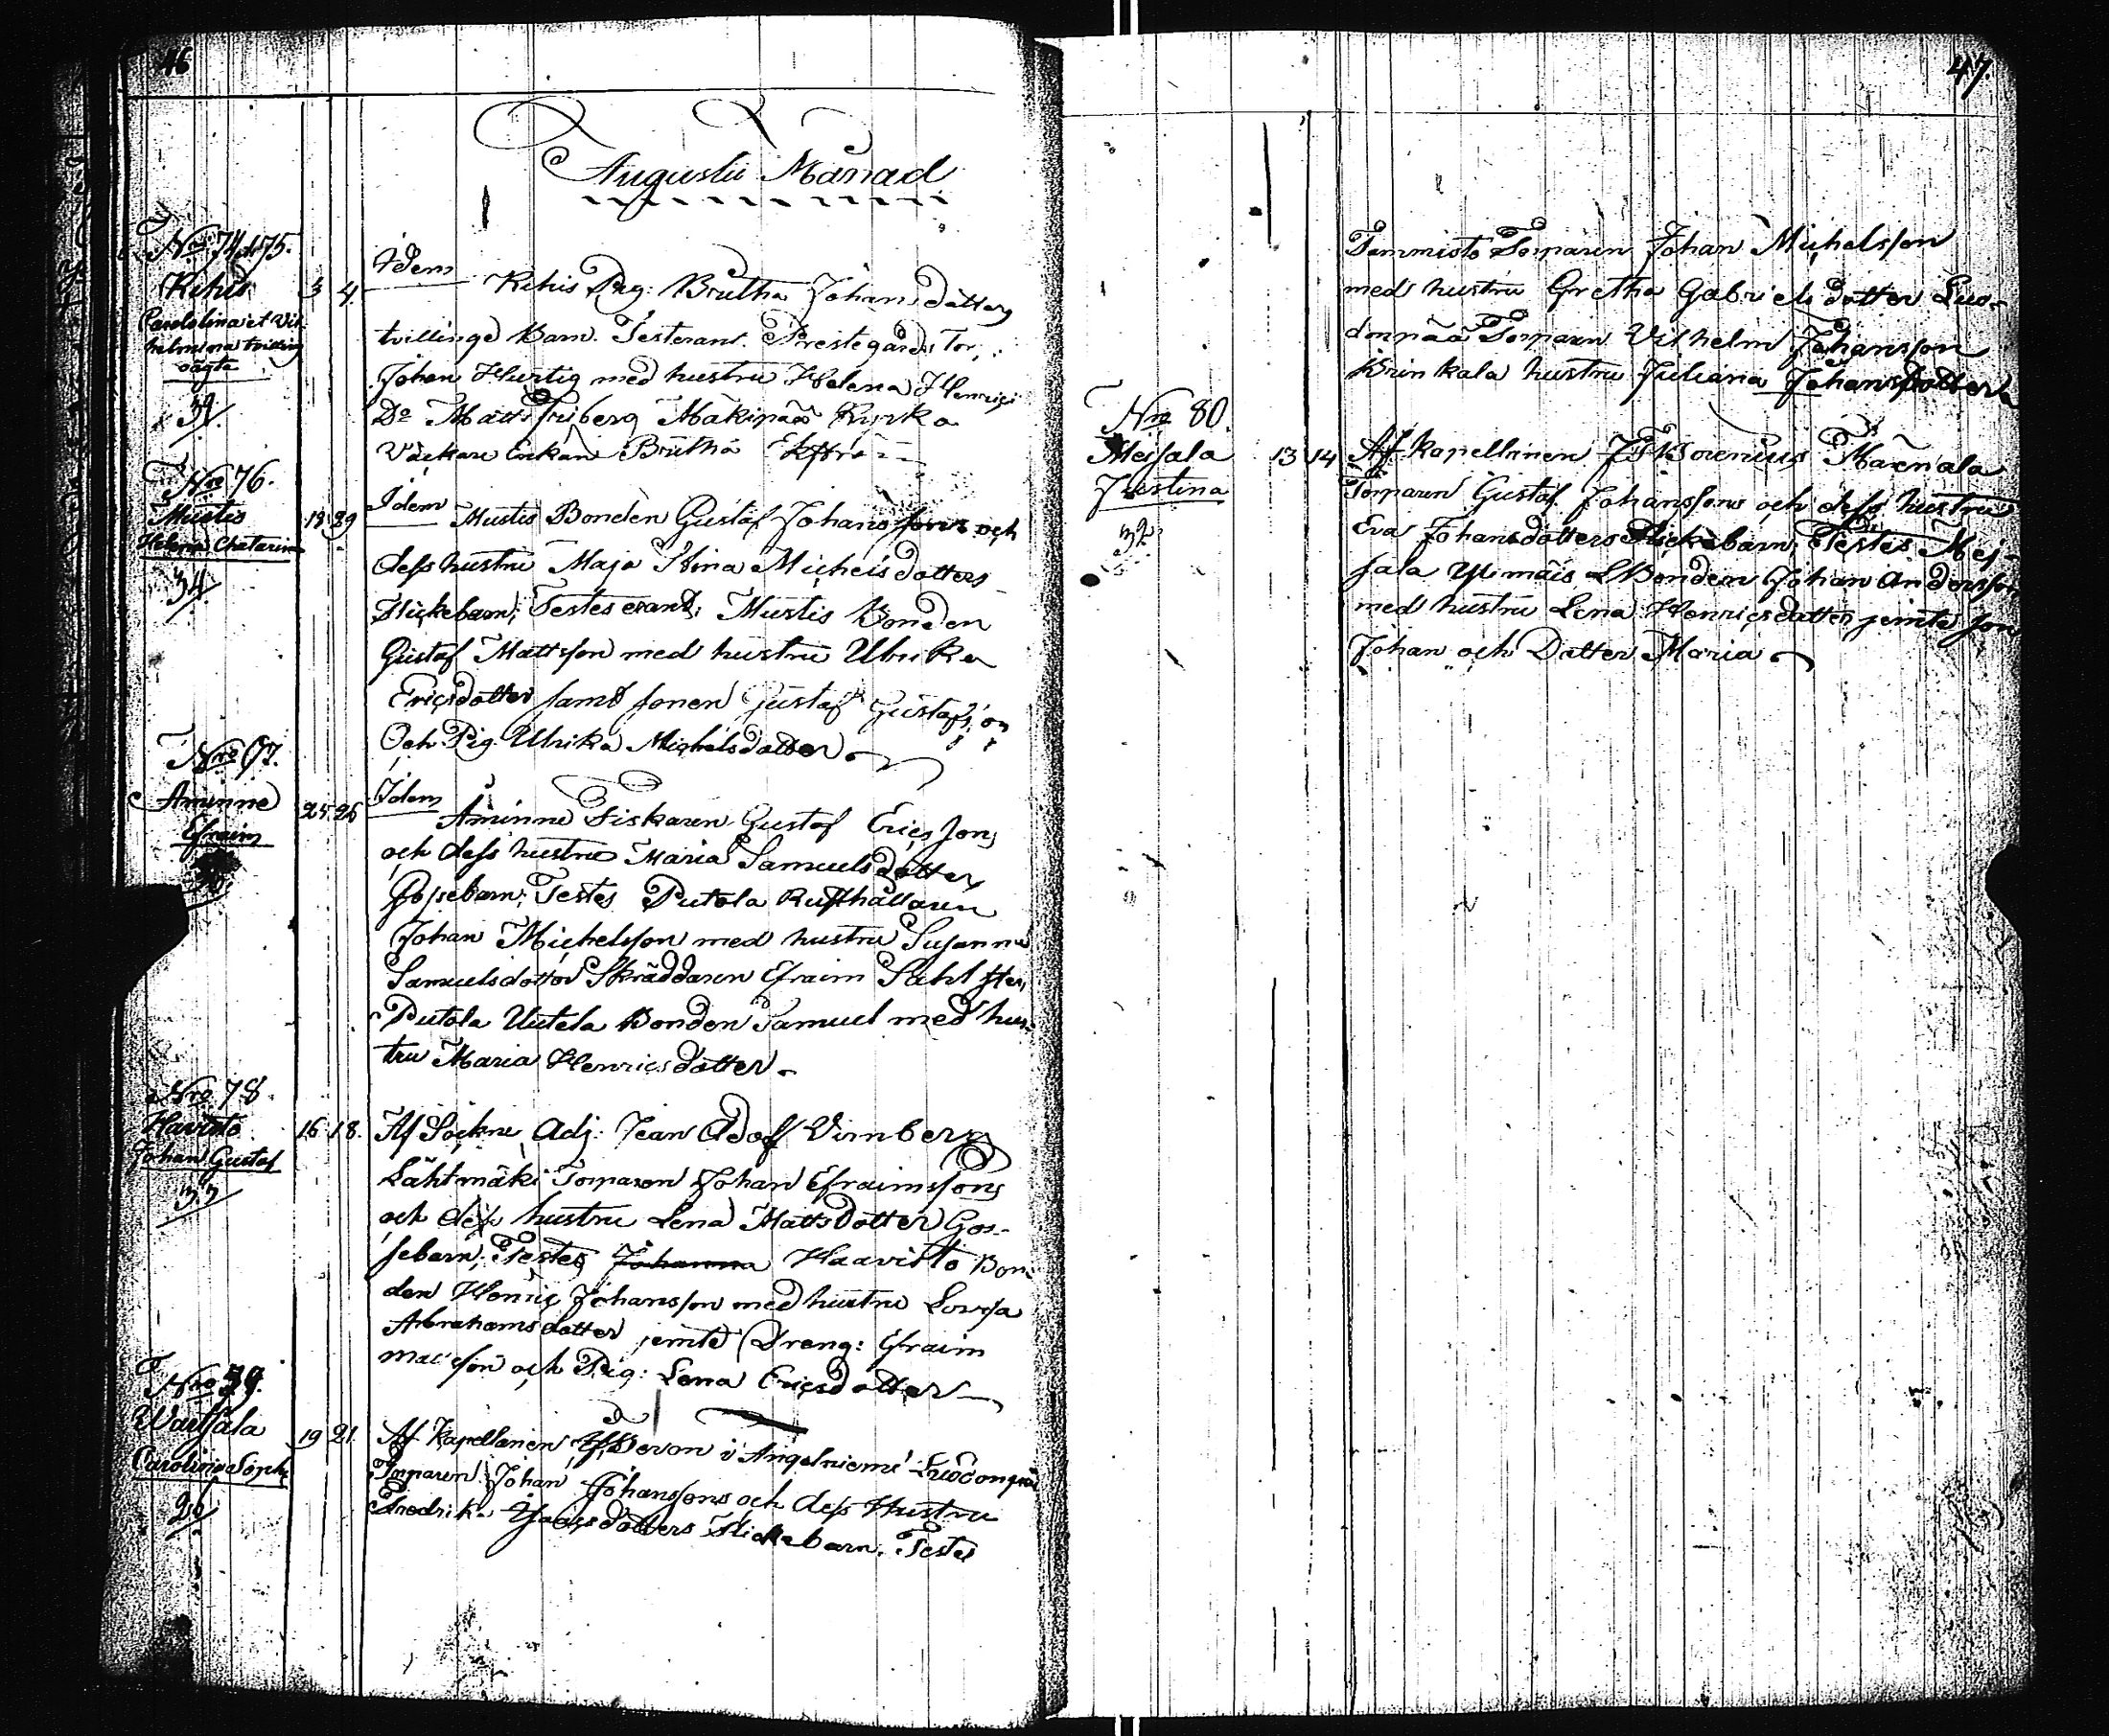 46
Augusti Månad
Nro 74 et 75.
Kehis
Carolina et Vil-
helmina tvilling
oägta
39.
3 4.
Idem
Kehis Pig: Britha Johans dotters
tvillinge Barn. Test erant. Prestegårds Tor.
Johan Hurtig med hustru Helena Henrics
Do Matts Friberg Mäkipää Kyrko
Väckare Enkan Britha
Nro 76.
Mustis
Helena Chatarina
34.
18 39
Idem
Mustis Bonden Gustaf Johanssons och
dess hustru Maja Stina Michels dotters
Flickebarn; Testes erant; Mustis Bonden
Gustaf Mattsson med hustru Ulrika
Ericsdotter samt sonen Gustaf Gustafsson
Och Pig. Ulrika Michelsdotter
Nro 77.
Aminne
Efraim
25 26
Idem
Åminne Fiskaren Gustaf Ericssons
och dess hustru Maria Samuels dotters
Gossebarn; Testes Putola Rusthållaren
Johan Michelsson med hustru Susanna
Samuelsdotter Skräddaren Efraim Sahlsten
Putola Uutela Bonden Samuel med hus-
tru Maria Henricsdotter
Nro 78.
Havisto
Johan Gustaf
33
16 18.
Af Sockne Adj: Jean Adolf Vimberg
Lähtmäki Torparen Johan Efraimssons
och dess hustru Lena Mattsdotter Gos-
sebarn; Testes Johanna Haavisto Bon-
den Henric Johansson med hustru Lovisa
Abrahamsdotter jemte Dreng: Efraim
Mats son och Pig: Lena Ericsdotter
Nro 79.
Wartsala
Carolina Soph
26
19 21.
Af Kapellanen i Angelniemi Luodonpää
Torparen Johan Johanssons och dess Hustru
Fredrika dotters Flickebarn. Testes
47.
Tammisto Torparen Johan Michelsson
med hustru Gretha Gabriels dotter Luo-
donpää Torparen Vilhelm Johansson
Brinkala hustru Juliana Johansdotter
Nro 80.
Meisala
Justina
32
13 14
Af Kapellanen Maenala
Torparen Gustaf Johanssons och dess hustru
Eva Johansdotters Flickebarn; Testes Mej-
sala Ylimäis Bonden Johan Andersson
med hustru Lena Henricsdotter jemte son
Johan och Dotter Maria